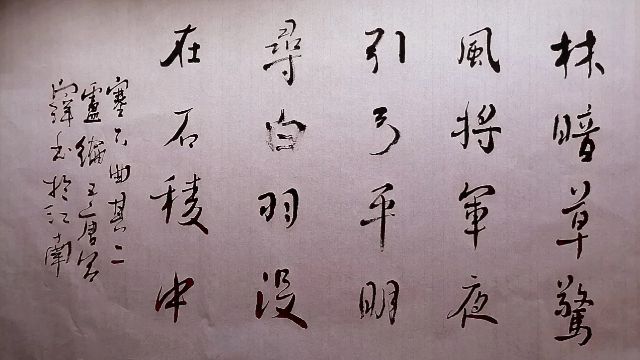 林暗草驚
風將軍夜
引弓平明
尋白羽没
在石稜中
塞下曲其二
盧綸 唐
書於江南